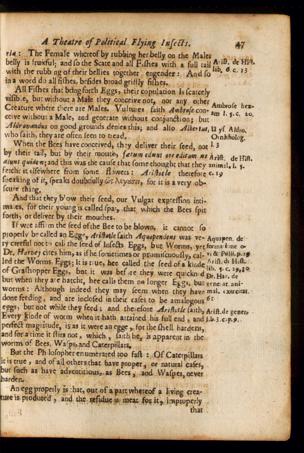 A Theatre of Political Flying Insects. 47
ria: The Female whereof by rubbing her belly on the Males
belly is fruitful; and so the Scate and all Fishes with a full tail
with the rubbing of their bellies together, engender: And so
in a word do all fishes, besides broad grisly fishes.
All Fishes that bring forth Eggs, their copulation is scarcely
visible, but without a Male they conceive not, nor any other
Creature where there are Males. Vultures saith Ambrose con-
ceive without a Male, and generate without conjunction; but
Aldrovandus on good grounds denies this; and also Albertus,
who saith, they are often seen to tread.
When the Bees have conceived, they deliver their seed, not
by their tail, but by their mouth,
and this was the cause that some thought that they
fetcht it elsewhere from some flowers: Aristotle therefore
speaking of it, speaks doubtfully for it is a very ob-
scure thing,
And that they blow their seed, our Vulgar expression inti-
mates, for their young is called spat, that which the Bees spit
forth, or deliver by their mouthes.
If we assirm the seed of the Bee to be blown, it cannot so
properly be called an Egg, Aristotle saith Aquapendens was ve-
ry careful not to call the seed of Insects Eggs, but Worms, yet
Dr. Harvey cites him, as if he sometimes or promiscuously, cal-
led the Worms, Eggs; It is true, hee called the seed of a kinde
of Grashopper Eggs, but it was before they were quickned
but when they are hatcht, hee calls them no longer Eggs, but
worms: Although indeed they may seem when they have
done feeding, and are inclosed in their cases to be analogous
eggs, but not while they feed; and therefore Aristotle saith,
Every kinde of worm when it hath attained his full end, and
perfect magnitude, is as it were an egge, for the shell hardens,
and for a time it stirs not, which, saith he, is apparent in the
worms of Bees, Wasps, and Caterpillars,
But the Philosopher enumerated too fast: Of Caterpillars
it is true, and of all others that have proper, or natural cases,
but such as have adventitious, as Bees, and Waspes, never
harden.
An egg properly is that, out of a part whereof a living crea-
ture is produced, and the residue is meat for it, improperly
that
Arist. de Hist.
lib. 6 c. 13
Ambrose hex-
am l. 5. c. 20.
Ornitholog.
l. 3
Arist. de Hist.
animal. l. 5.
c. 19
Aquapen. de
lib. 5. c. 19, 20
Dr. Har. de
Arist. de gener.
l. 3. c. 9.